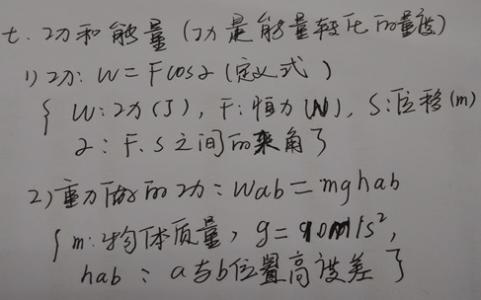 七、功和能量(功是能量转化的量度)
1)功:W=Fcosα(定义式)
{W:功(J),F:恒力(N),S:位移(m)
α:F、S之间的夹角}
2)重力做的功:Wab=mghab
{m:物体质量,g=9.0m/s²,
hab:a与b位置高度差}